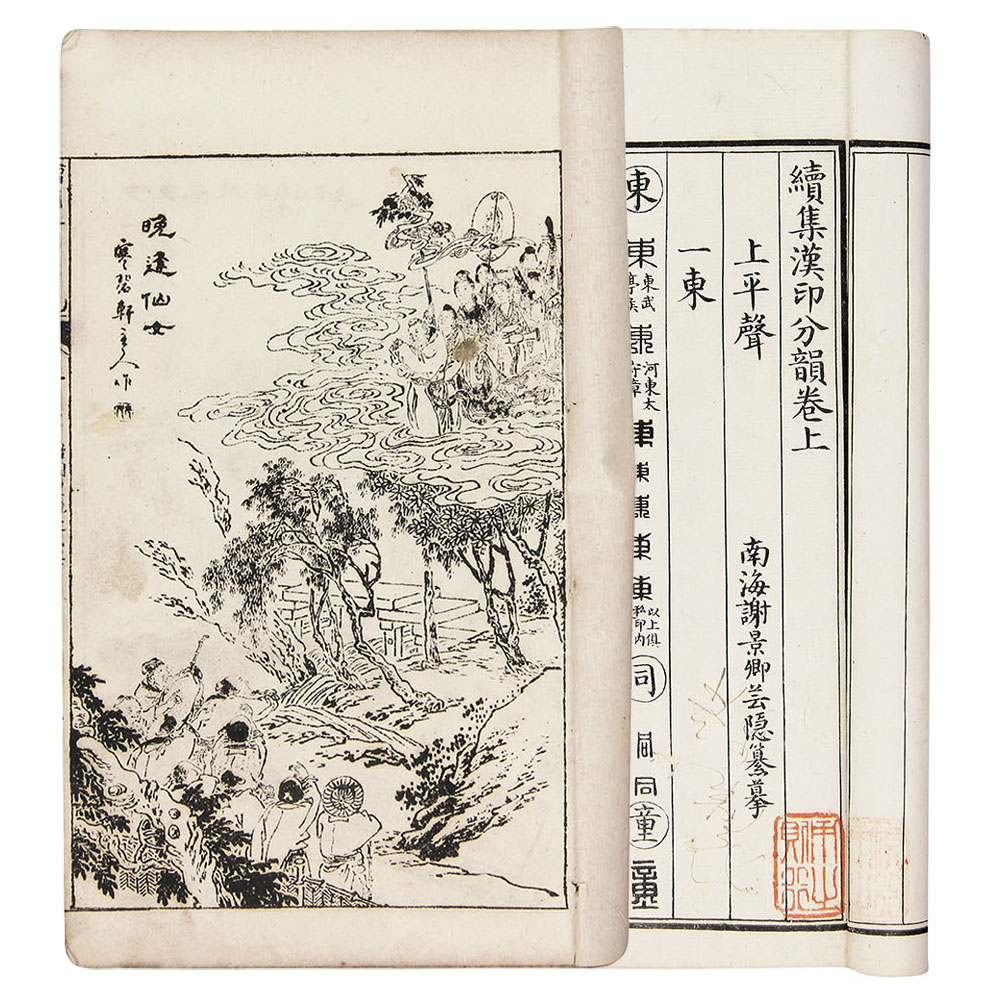 續集漢印分韻卷上
上平聲 南海謝景卿芸隱纂摹
一東
東 東 東武亭矦 東 河東太守章 東 東 東 東 東 以上俱私印內 同 同 同 童 童
用之則行
晚逢仙女
寒碧軒主人作